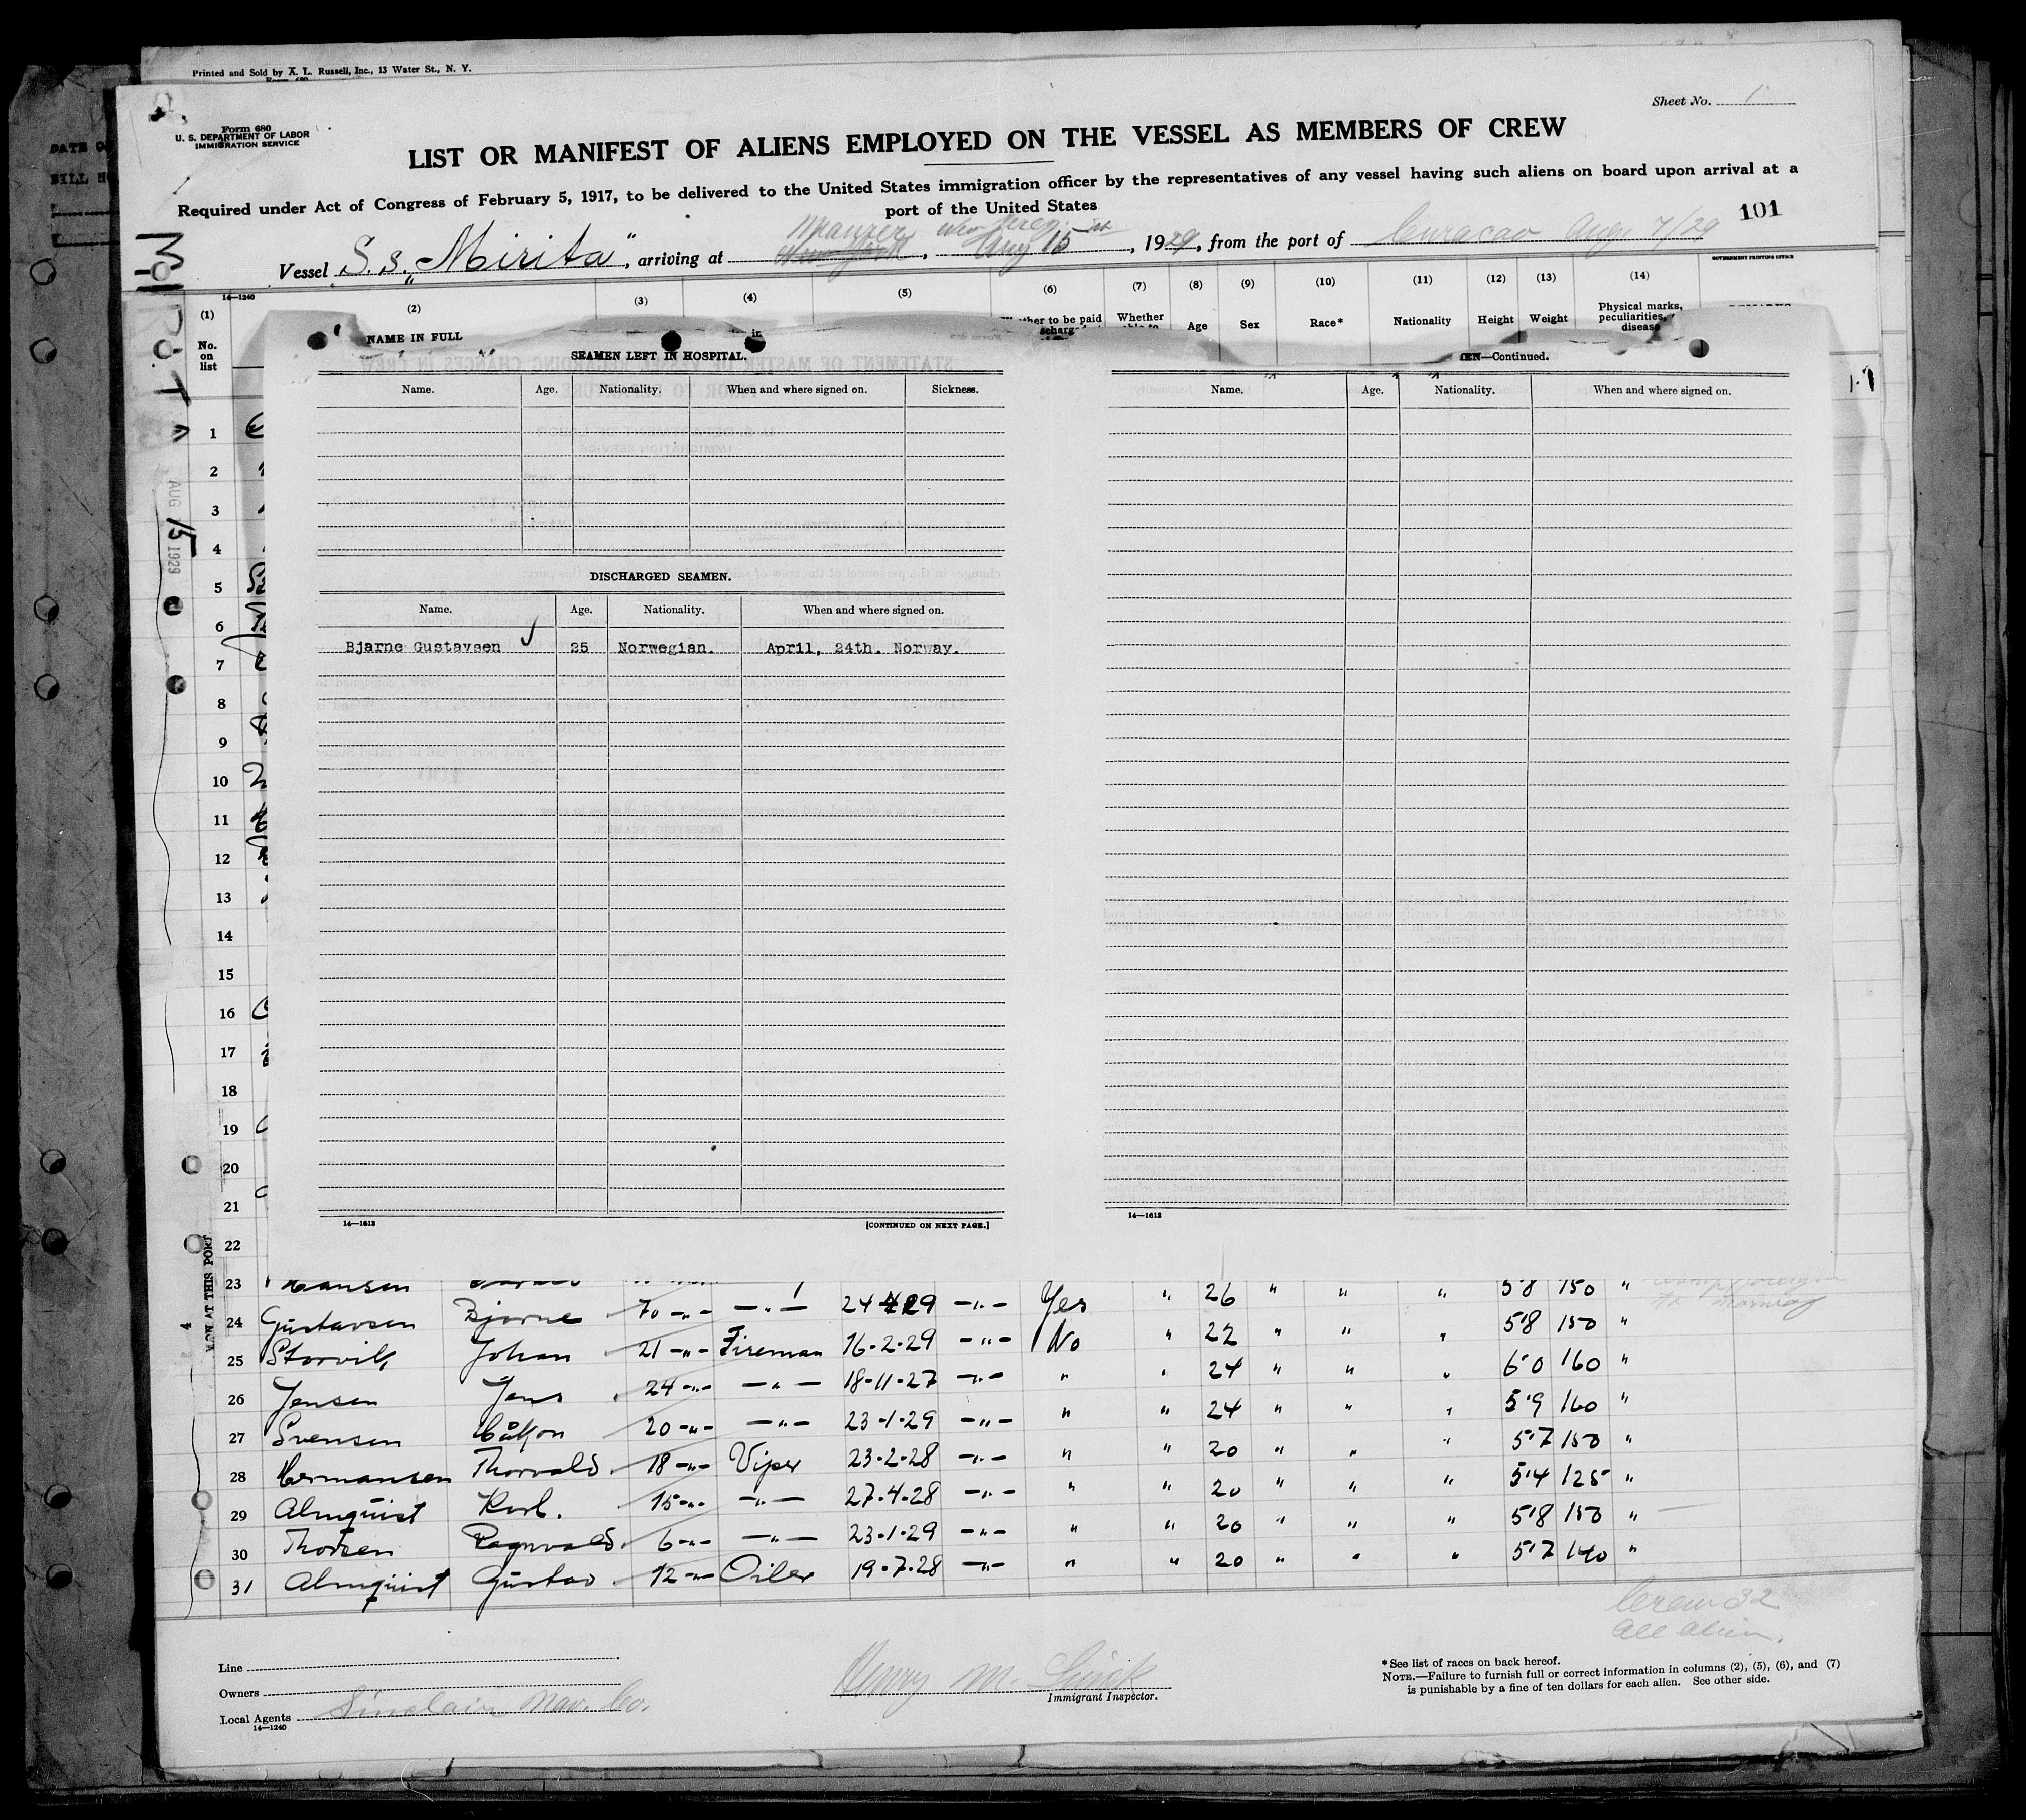 Printed and Sold by A. L. Russell, Inc., 13 Water St., N. Y.
Sheet No. 1
Form 680
U. S. DEPARTMENT OF LABOR
IMMIGRATION SERVICE
LIST OR MANIFEST OF ALIENS EMPLOYED ON THE VESSEL AS MEMBERS OF CREW
Required under Act of Congress of February 5, 1917, to be delivered to the United States immigration officer by the representatives of any vessel having such aliens on board upon arrival at a
port of the United States
101
Vessel S.s. "Mirita", arriving at New York, Aug 15, 1929, from the port of Curacao Aug 7/29
14—1240
GOVERNMENT PRINTING OFFICE
(1) (2) (3) (4) (5) (6) (7) (8) (9) (10) (11) (12) (13) (14)
No. on list NAME IN FULL Whether Age Sex Race* Nationality Height Weight Physical marks, peculiarities, disease
AUG 15 1929
SEAMEN LEFT IN HOSPITAL.
Name. Age. Nationality. When and where signed on. Sickness.
DISCHARGED SEAMEN.
Name. Age. Nationality. When and where signed on.
Bjarne Gustavsen 25 Norwegian. April, 24th. Norway.
14—1613 [CONTINUED ON NEXT PAGE.]
EN—Continued.
Name. Age. Nationality. When and where signed on.
14—1613
1
2
3
4
5
6
7
8
9
10
11
12
13
14
15
16
17
18
19
20
21
22
23 Hansen
24 Gustavsen Bjarne 70 -"- -"- 24 4 29 -"- Yes " 26 " " " 5'8 150 "
25 Storvik Johan 21 -"- Fireman 16-2-29 -"- No " 22 " " " 5'8 150 "
26 Jensen Jens 24 -"- -"- 18-11-27 -"- " " 24 " " " 6'0 160 "
27 Svensen Håkon 20 -"- -"- 23-1-29 -"- " " 24 " " " 5'9 160 "
28 Hermansen Thorvald 18 -"- Viper 23-2-28 -"- " " 20 " " " 5'7 150 "
29 Almquist Karl. 15 -"- -"- 27-4-28 -"- " " 20 " " " 5'4 125 "
30 Thorsen Ragnvald 6 -"- -"- 23-1-29 -"- " " 20 " " " 5'8 150 "
31 Almquist Gustav 12 -"- Oiler 19-7-28 -"- " " 20 " " " 5'7 140 "
Crew 32
all alien.
Line
Owners
Local Agents Sinclair Nav. Co.
14—1240
Henry M.
Immigrant Inspector.
*See list of races on back hereof.
NOTE.—Failure to furnish full or correct information in columns (2), (5), (6), and (7)
is punishable by a fine of ten dollars for each alien. See other side.